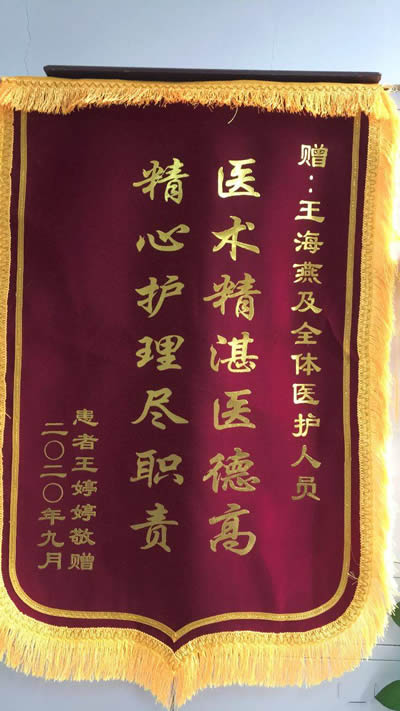 赠：王海燕及全体医护人员
医术精湛医德高
精心护理尽职责
患者王婷婷敬赠
二〇二〇年九月